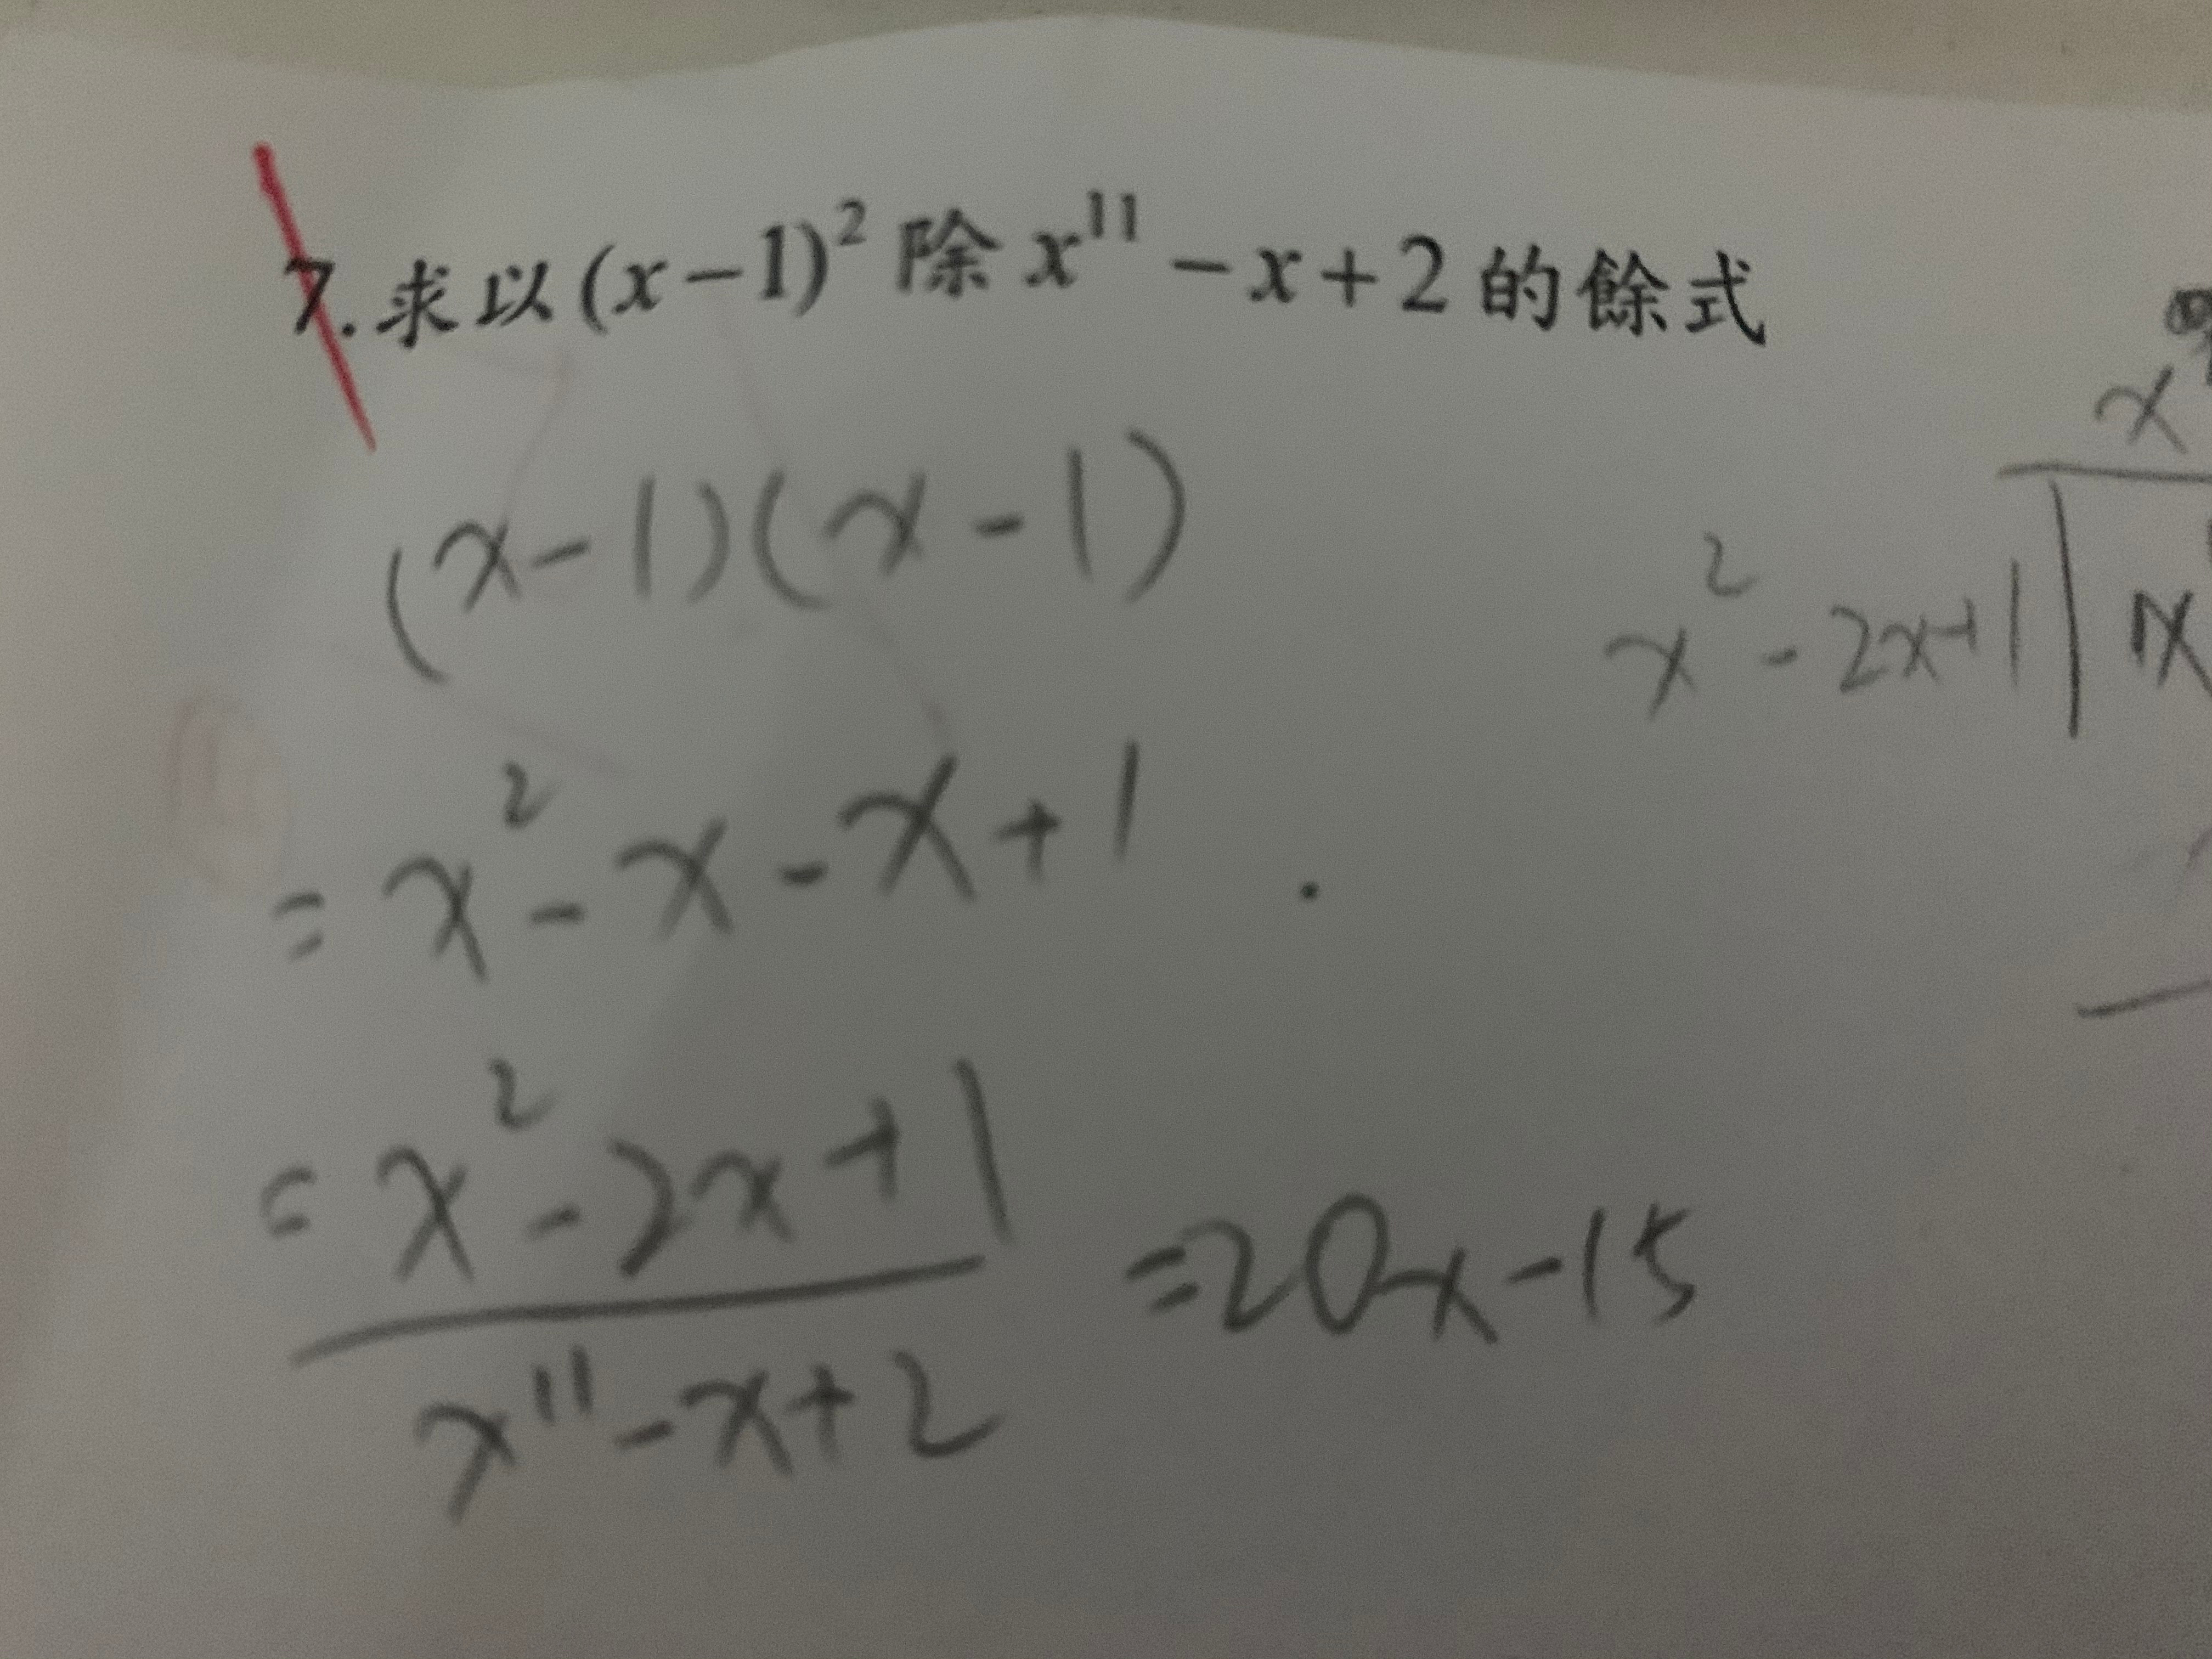 7. 求以 (x-1)² 除 x¹¹ - x + 2 的餘式
(x-1)(x-1)
= x² - x - x + 1
= x² - 2x + 1
x¹¹ - x + 2
= 20x - 15
x
x² - 2x + 1